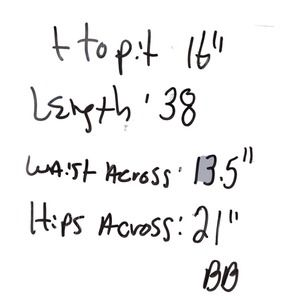 t to p:t 16"
Length ' 38
Waist Across: 13.5"
Hips Across: 21"
BB